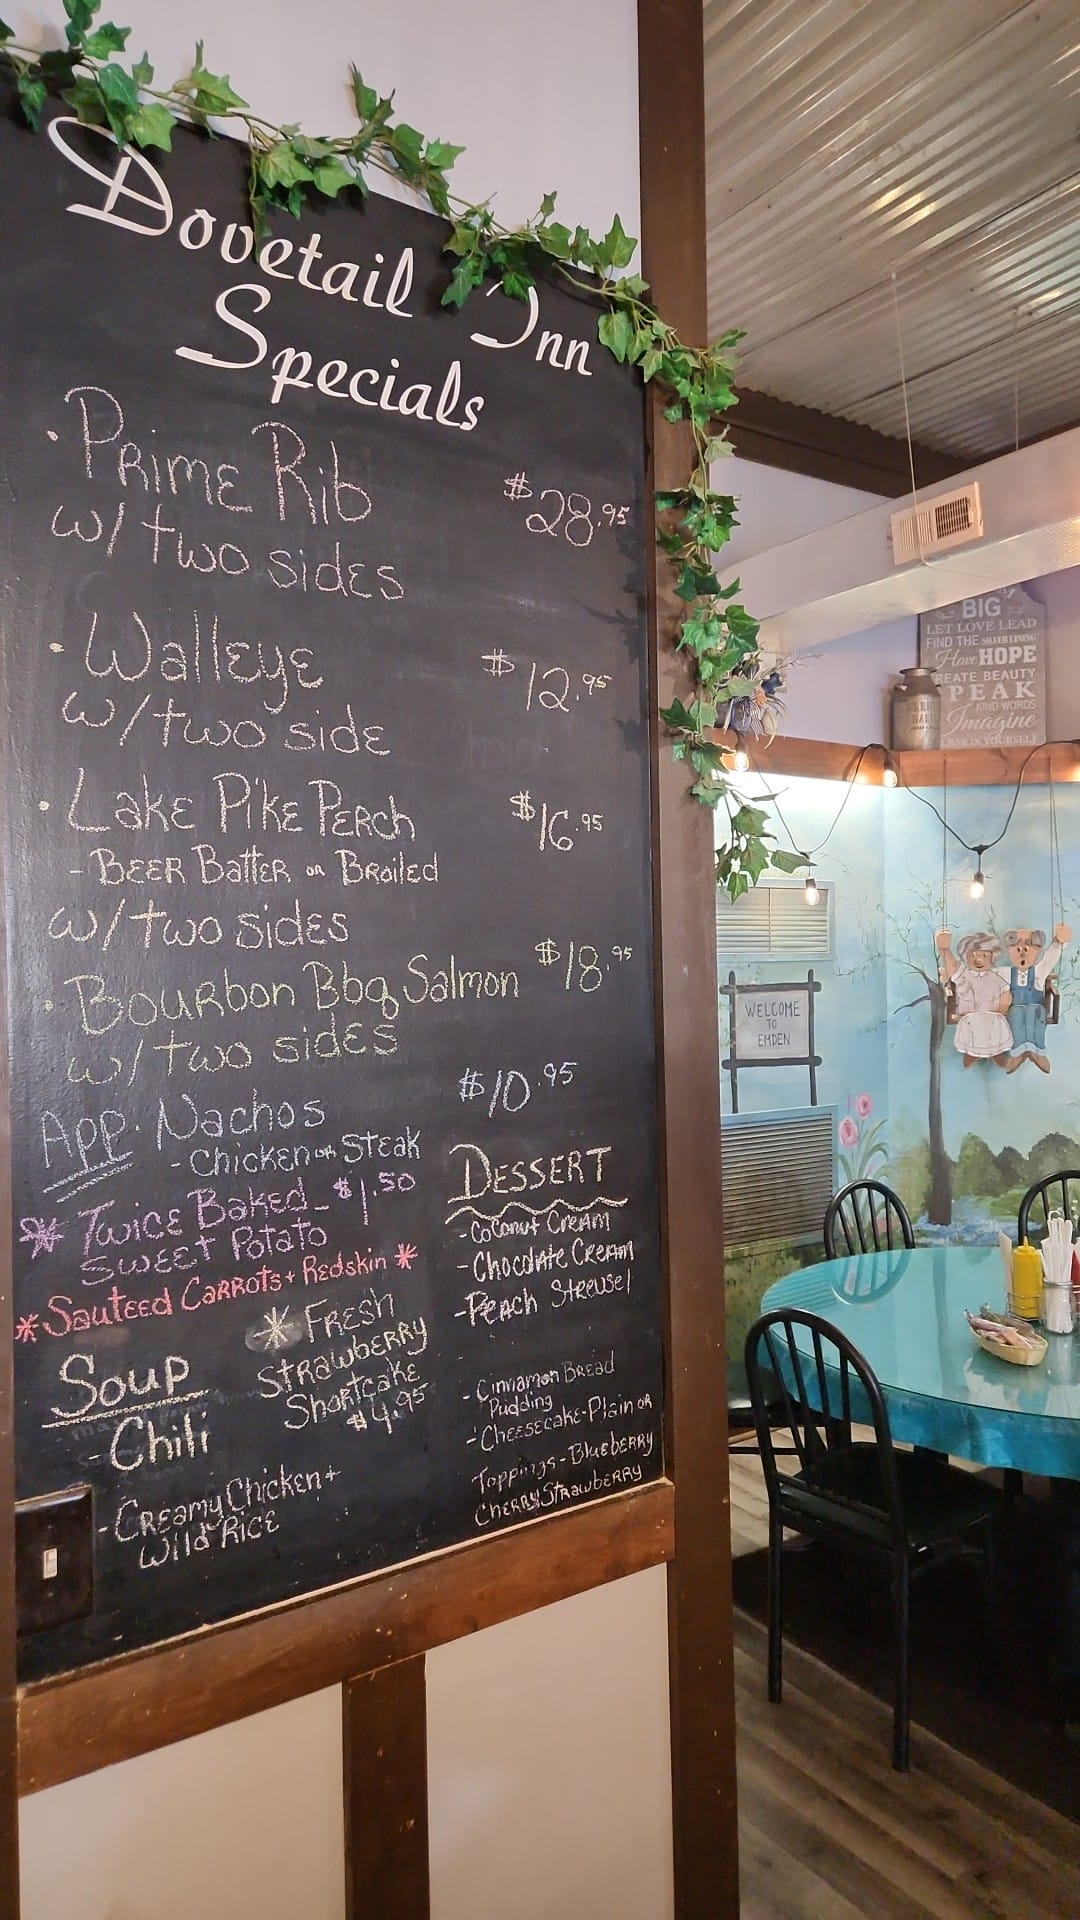 Dovetail Inn
Specials
• Prime Rib $28.95
w/ two sides
• Walleye $12.95
w/ two side
• Lake Pike Perch $16.95
- Beer Batter or Broiled
w/ two sides
• Bourbon Bbq Salmon $18.95
w/ two sides
App. Nachos $10.95
- Chicken or Steak
* Twice Baked - $1.50
Sweet Potato
* Sauteed Carrots + Redskin *
* Fresh
Strawberry
Shortcake
$4.95
Soup
- Chili
- Creamy Chicken +
Wild Rice
Dessert
- Coconut Cream
- Chocolate Cream
- Peach Streusel
- Cinnamon Bread
Pudding
- Cheesecake - Plain or
Toppings - Blueberry
Cherry/Strawberry
BIG
LET LOVE LEAD
FIND THE SILVER LINING
Have HOPE
CREATE BEAUTY
SPEAK
KIND WORDS
Imagine
BELIEVE IN YOURSELF
WELCOME
TO
EMDEN